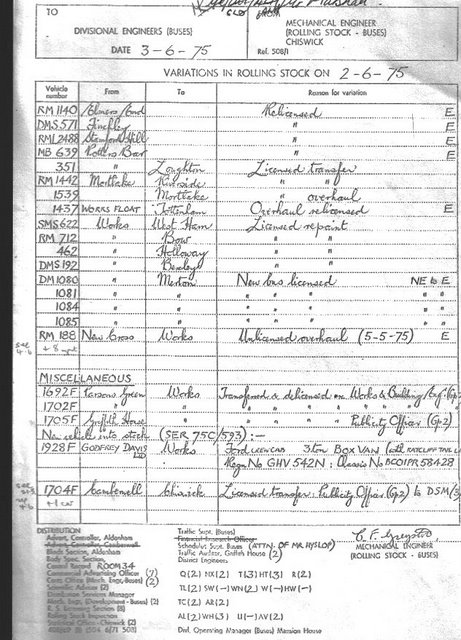 TO
FROM
MECHANICAL ENGINEER
(ROLLING STOCK - BUSES)
CHISWICK
DIVISIONAL ENGINEERS (BUSES)
DATE 3-6-75
Ref. 508/1
VARIATIONS IN ROLLING STOCK ON 2-6-75
Vehicle number From To Reason for variation
RM 1140 Elmers End Relicensed E
DMS 571 Finchley " E
RML 2488 Stamford Hill " E
MB 639 Potters Bar " E
351 " Loughton Licensed transfer
RM 1442 Mortlake Riverside " "
1539 " Mortlake " overhaul
1437 WORKS FLOAT Tottenham Overhaul relicensed E
SMS 622 Works West Ham Licensed repaint
RM 712 " Bow " "
462 " Holloway " "
DMS 192 " Bexley " "
DM 1080 " Merton New bus licensed NE to E
1081 " " " " " " "
1084 " " " " " " "
1085 " " " " " " "
RM 188 New Cross Works Unlicensed overhaul (5-5-75) E
MISCELLANEOUS
1692F Parsons Green Works Transferred & delicensed on Works & Building (Gp.
1702F " " " " "
1705F Griffith House " " " Publicity Officer (Gp2)
New vehicle into stock (SER 75C/593) :-
1928F GODFREY DAVIS LTD Works Ford 3 ton BOX VAN (with RATCLIFF TAIL
Regn No GHV 542N : Chassis No BC01PR58428
1704F Camberwell Chiswick Licensed transfer : Publicity Officer (Gp2) to DSM
DISTRIBUTION
Advert. Controller, Aldenham
Advert. Controller, Camberwell
Block Section, Aldenham
Body Spec. Section,
Control Record ROOM 34
Commercial Advertising Officer (7)
Costs Office (Mech. Engr. Buses) (2)
Scientific Adviser (2)
Distribution Services Manager
Mech. Engr. (Development - Buses) (2)
Rolling Stock Inspection
Statistical Office - Chiswick (2)
Traffic Supt. (Buses)
Schedules Supt. Buses (ATTN. OF MR HYSLOP)
Traffic Auditor, Griffith House (2)
District Engineers
Q(2) NX(2) T(3) HT(3) R(2)
TL(2) SW(-) WN(2) W(-) HW(-)
TC(2) AR(2)
AL(2) WH(3) U(-) AV(2)
Divl. Operating Manager (Buses) Mansion House
MECHANICAL ENGINEER
(ROLLING STOCK - BUSES)